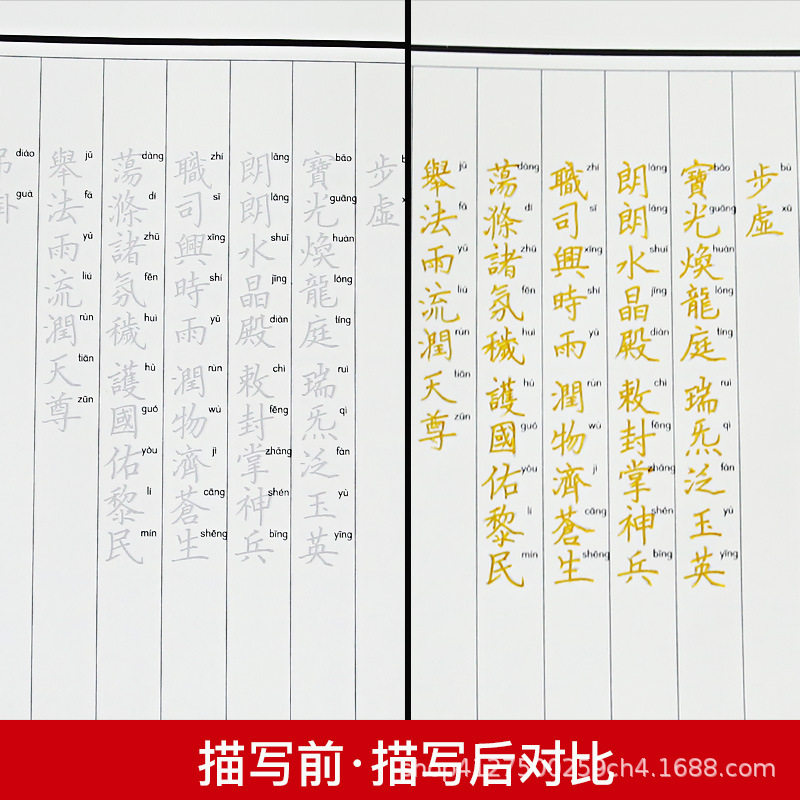 步虛
bù xū
寶光煥龍庭 瑞炁泛玉英
bǎo guāng huàn lóng tíng ruì qì fàn yù yīng
朗朗水晶殿 敕封掌神兵
lǎng lǎng shuǐ jīng diàn chì fēng zhǎng shén bīng
職司興時雨 潤物濟蒼生
zhí sī xīng shí yǔ rùn wù jì cāng shēng
蕩滌諸氛穢 護國佑黎民
dàng dí zhū fēn huì hù guó yòu lí mín
舉法雨流潤天尊
jǔ fǎ yǔ liú rùn tiān zūn
吊卦
diào guà
步虛
bù xū
寶光煥龍庭 瑞炁泛玉英
bǎo guāng huàn lóng tíng ruì qì fàn yù yīng
朗朗水晶殿 敕封掌神兵
lǎng lǎng shuǐ jīng diàn chì fēng zhǎng shén bīng
職司興時雨 潤物濟蒼生
zhí sī xīng shí yǔ rùn wù jì cāng shēng
蕩滌諸氛穢 護國佑黎民
dàng dí zhū fēn huì hù guó yòu lí mín
舉法雨流潤天尊
jǔ fǎ yǔ liú rùn tiān zūn
描写前·描写后对比